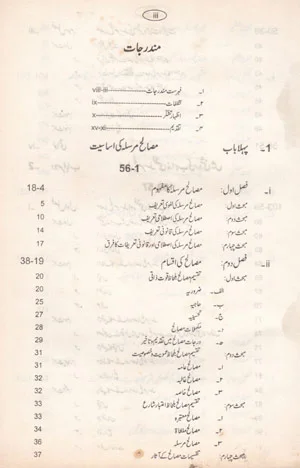 iii
مندرجات
۱۔ فہرست مندرجات viii-iii
۲۔ مخففات ix
۳۔ اظہار تشکر x
۴۔ تقدیم xv-xi
1۔ پہلا باب مصالح مرسلہ کی اساسیت
56-1
i۔ فصل اول: مصالح مرسلہ کا مفہوم 18-4
مبحث اول: مصالح مرسلہ کی لغوی تعریف 5
مبحث دوم: مصالح مرسلہ کی اصطلاحی تعریف 10
مبحث سوم: مصالح مرسلہ کی قانونی تعریف 14
مبحث چہارم: مصالح مرسلہ کی اصطلاحی اور قانونی تعریفات کا فرق 17
ii۔ فصل دوم: مصالح کی اقسام 38-19
مبحث اول: تقسیم مصالح بلحاظ قوت ذاتی 20
الف۔ ضروریہ 20
ب۔ حاجیہ 25
ج۔ تحسینیہ 27
د۔ مکملات مصالح 28
ہ۔ درجات مصالح میں تقدیم و تاخیر 29
مبحث دوم: تقسیم مصالح بلحاظ عمومیت و خصوصیت 31
۱۔ مصالح عامہ 31
۲۔ مصالح غالبہ 32
۳۔ مصالح خاصہ 32
مبحث سوم: تقسیم مصالح بلحاظ اعتبار شارع 33
۱۔ مصالح معتبرہ 33
۲۔ مصالح ملغاۃ 34
۳۔ مصالح مرسلہ 36
مبحث چہارم: تقسیمات مصالح کے آثار 37